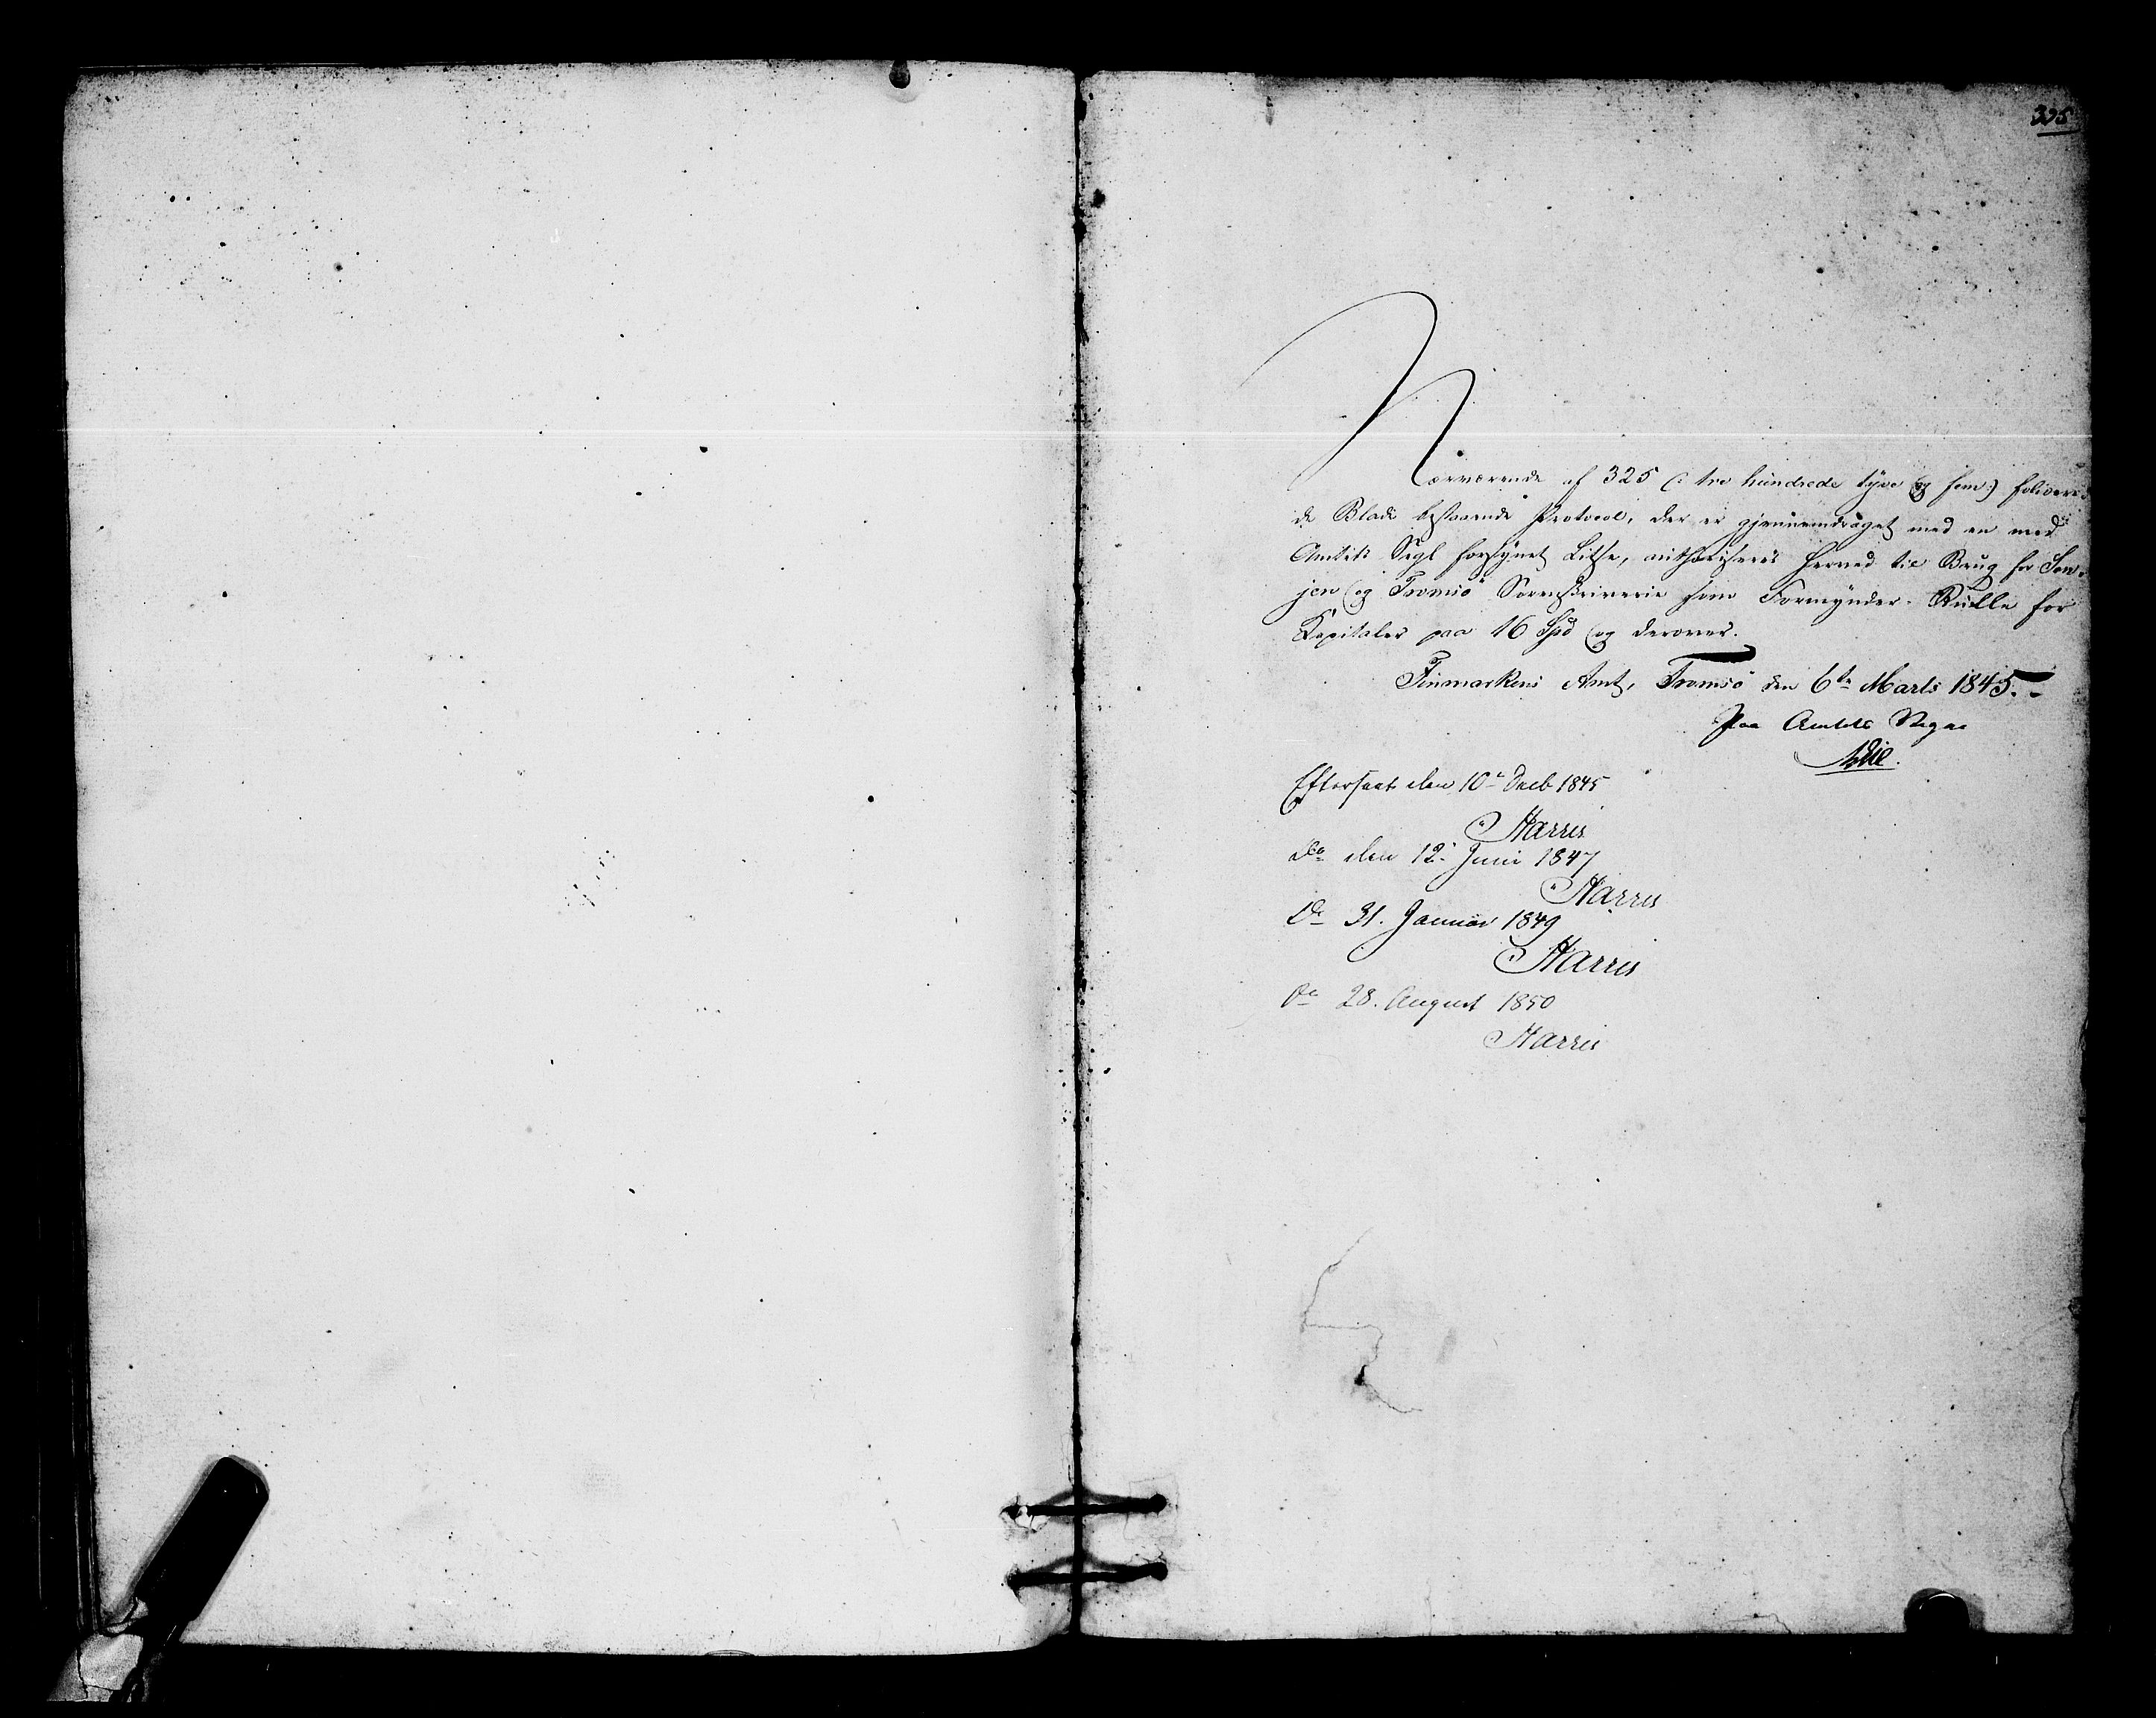 325
Nærværende af 325 (: tre hundrede tyve og fem :) foliere-
de Blade bestaaende Protocol, der er gjennemdraget med en med
Amtets Segl forsynet Litse, authoriseres herved til Brug for Sen-
jen og Tromsö Sorenskriverie som Formynder-Rulle for
Kapitaler paa 16 Spd og derover.
Finmarkens Amt, Tromsö den 6te Marts 1845.-
Paa Amtets Vegne
Eftersaat den 10e Decb 1845
Harris
Do den 12. Juni 1847
Harris
Do 31. Januar 1849
Harris
Do 28. August 1850
Harris